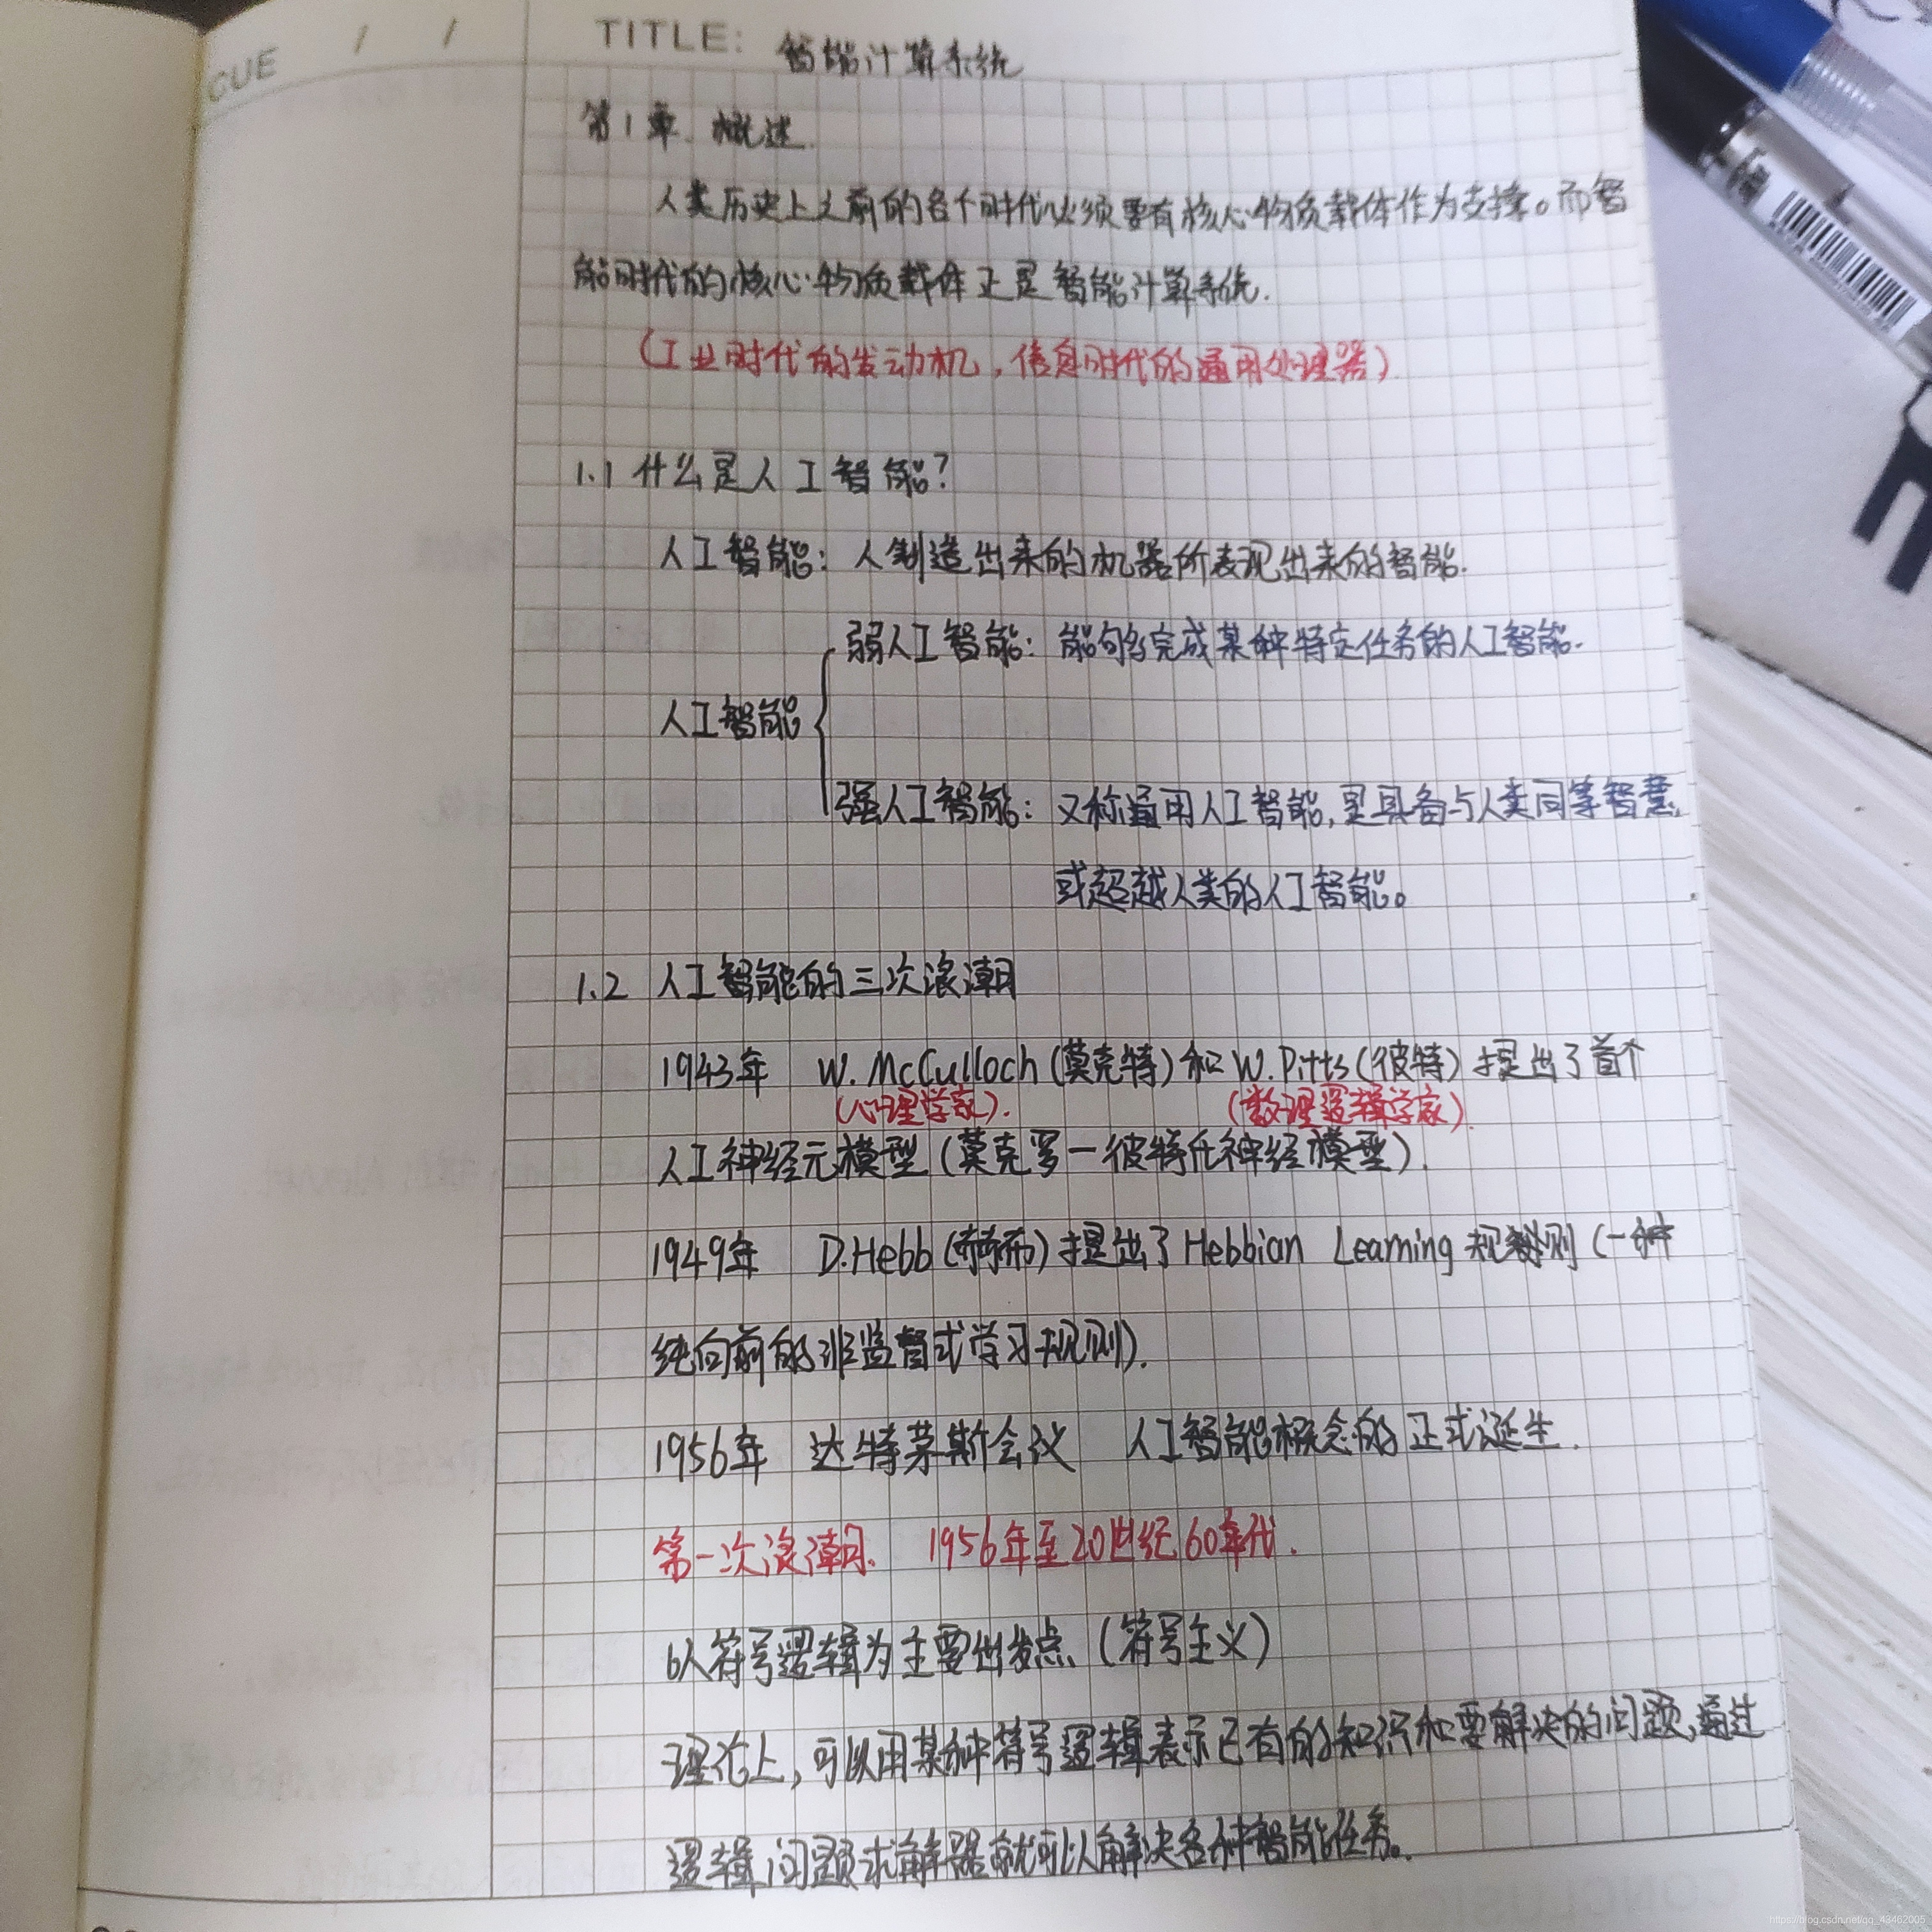 CUE / / TITLE: 智能计算系统
第1章. 概述.
人类历史上之前的各个时代必须要有核心物质载体作为支撑。而智
能时代的核心物质载体正是智能计算系统.
(工业时代的发动机,信息时代的通用处理器)
1.1 什么是人工智能?
人工智能: 人制造出来的机器所表现出来的智能.
弱人工智能: 能够完成某种特定任务的人工智能.
人工智能
强人工智能: 又称通用人工智能,是具备与人类同等智慧,
或超越人类的人工智能。
1.2 人工智能的三次浪潮
1943年 W. McCulloch (莫克特) 和 W. Pitts (彼特) 提出了首个
(心理学家). (数理逻辑学家).
人工神经元模型 (莫克罗一彼特氏神经模型).
1949年 D.Hebb (赫布) 提出了 Hebbian Learning 规则 (一种
纯向前的非监督式学习规则).
1956年 达特茅斯会议 人工智能概念的正式诞生.
第一次浪潮. 1956年至20世纪60年代.
以符号逻辑为主要出发点 (符号主义)
理论上,可以用某种符号逻辑表示已有的知识和要解决的问题,通过
逻辑问题求解器就可以解决各种智能任务。
https://blog.csdn.net/qq_43462005